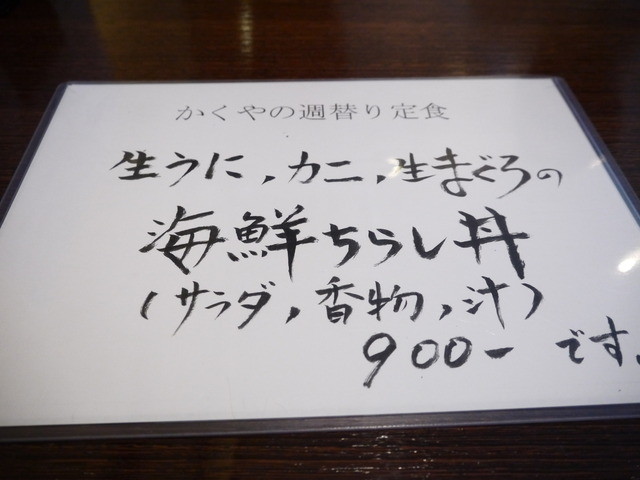 かくやの週替り定食
生うに,カニ,生まぐろの
海鮮ちらし丼
(サラダ,香物,汁)
900-です。